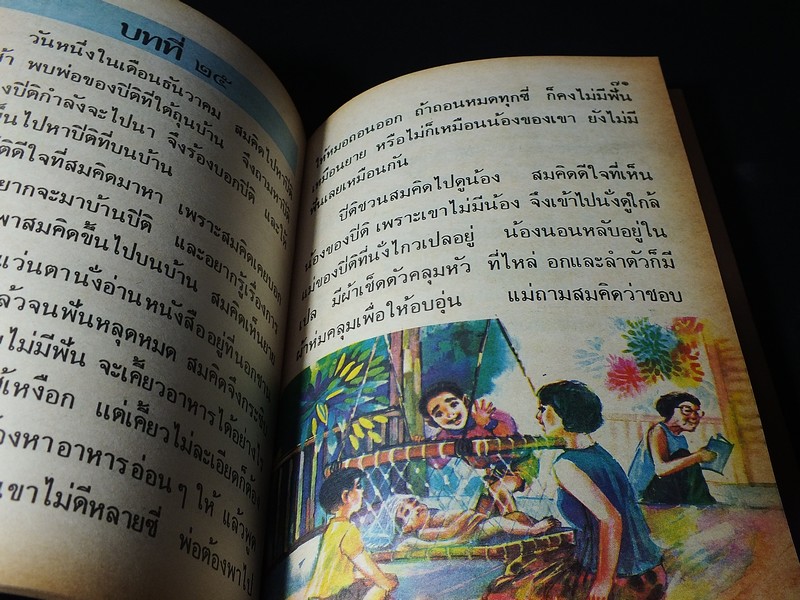 บทที่ ๒๕
วันหนึ่งในเดือนธันวาคม สมคิดไปหาปิติ
พบพ่อของปิติที่ใต้ถุนบ้าน จึงถามหาปิติ
ปิติกำลังจะไปนา จึงร้องบอกปิติ และให้
ขึ้นไปหาปิติที่บนบ้าน
ดีใจที่สมคิดมาหา เพราะสมคิดเคยบอก
อยากจะมาบ้านปิติ และอยากรู้เรื่องการ
พาสมคิดขึ้นไปบนบ้าน สมคิดเห็นยาย
แว่นตานั่งอ่านหนังสืออยู่ที่นอกชาน
แล้วจนฟันหลุดหมด สมคิดจึงกระซิบ
ไม่มีฟัน จะเคี้ยวอาหารได้อย่างไร
เหงือก แต่เคี้ยวไม่ละเอียดก็ต้อง
หาอาหารอ่อนๆ ให้ แล้วพูด
เขาไม่ดีหลายซี่ พ่อต้องพาไป
ให้หมอถอนออก ถ้าถอนหมดทุกซี่ ก็คงไม่มีฟัน
เหมือนยาย หรือไม่ก็เหมือนน้องของเขา ยังไม่มี
ฟันเลยเหมือนกัน
ปิติชวนสมคิดไปดูน้อง สมคิดดีใจที่เห็น
น้องของปิติ เพราะเขาไม่มีน้อง จึงเข้าไปนั่งดูใกล้
แม่ของปิติที่นั่งไกวเปลอยู่ น้องนอนหลับอยู่ใน
เปล มีผ้าเช็ดตัวคลุมหัว ที่ไหล่ อกและลำตัวก็มี
ผ้าห่มคลุมเพื่อให้อบอุ่น แม่ถามสมคิดว่าชอบ